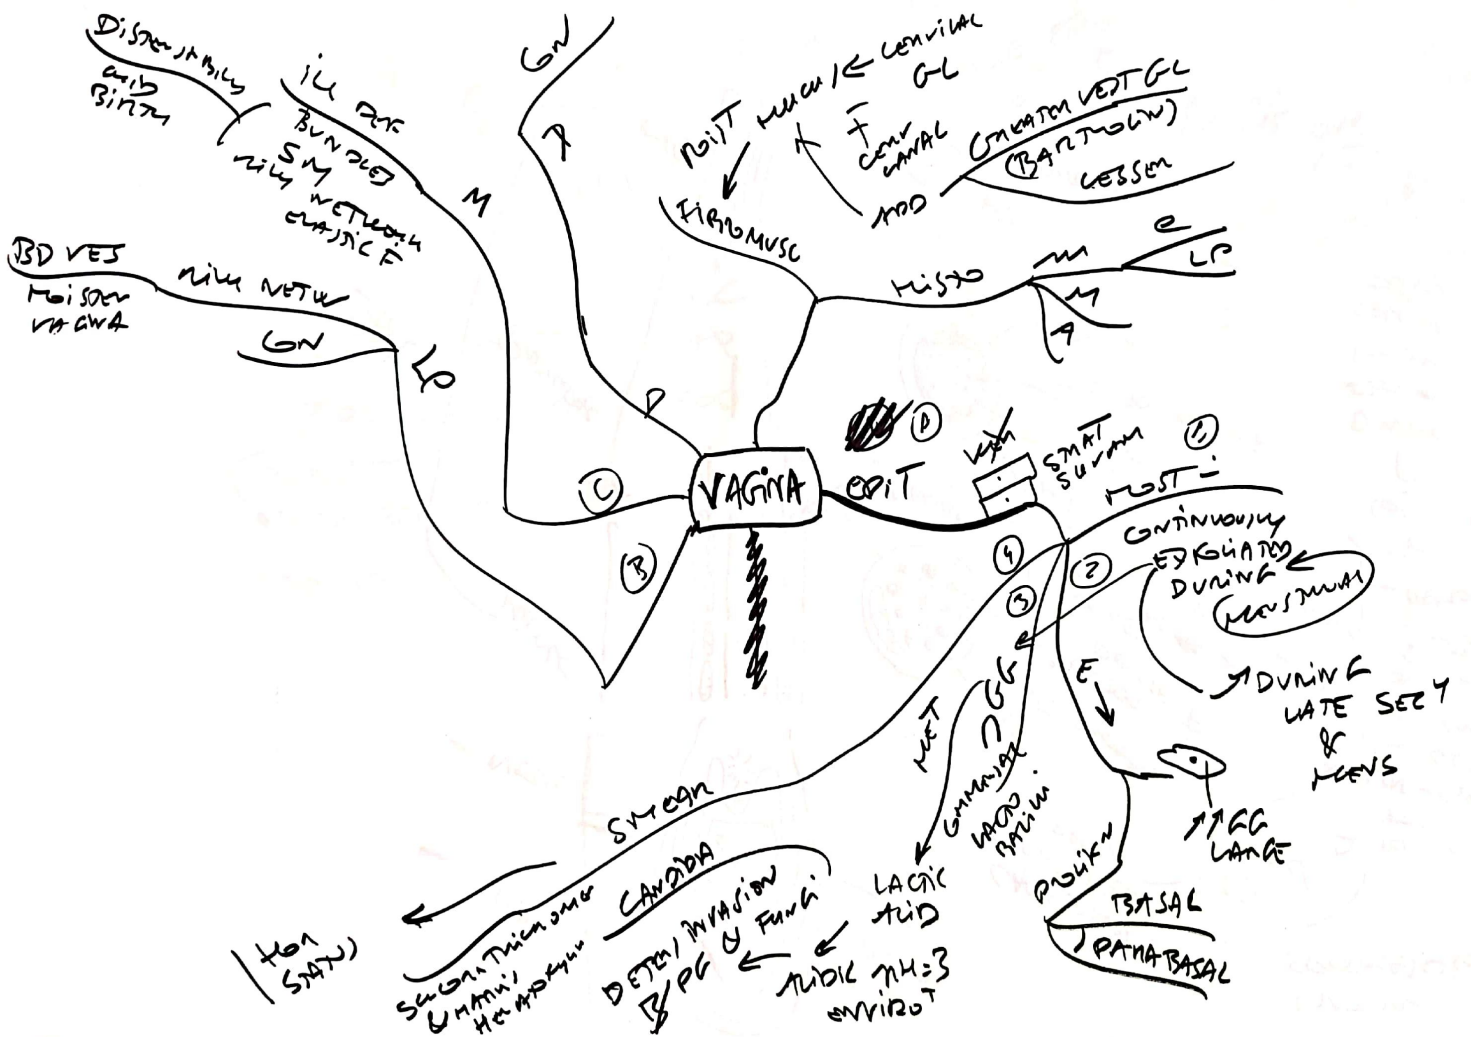 DISTENSIBILITY
CHILD
BIRTH
ill DEF
BUNDLES
SM
RICH
NETWORK
ELASTIC F
M
BD VES
MOISTEN
VAGINA
RICH NETW
GN
LP
GN
P
D
C
B
VAGINA
MOIST
FIBROMUSC
MUCUS
CERVICAL
GL
F
CERV
CANAL
ADD
GREATER VEST GL
(BARTHOLIN)
LESSER
HISTO
M
E
LP
M
A
A
EPIT
STRAT
SQUAM
1
MOST
CONTINUOUSLY
EXFOLIATED
DURING
MENSTRUAL
↗ DURING
LATE SECY
&
MENS
2
3
4
E
↓
↑↑ GG
LARGE
PROLIFN
BASAL
PARABASAL
GG
MET
COMMENSAL
LACTO
BACILLI
LACTIC
ACID
ACIDIC PH=3
ENVIROT
DETER / INVASION
B/ PG & FUNGI
SMEAR
CANDIDA
SHORR TRICHROME
& HARRIS
HEMATOXYLIN
HOR
STATUS